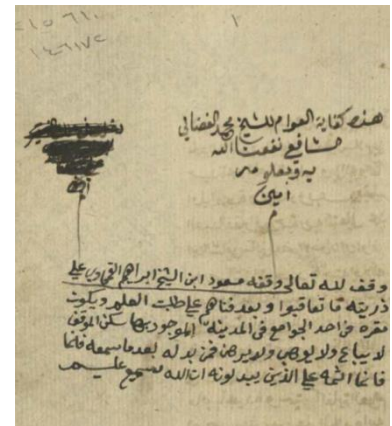 ١
هذه كفاية العوام للشيخ محمد الفضالي
الشافعي نفعنا الله
به وبعلومه
امين
وقف لله تعالى وقفه مسعود ابن الشيخ ابراهيم على
ذريته ما تعاقبوا وبعد فناهم على طلبت العلم ويكون
مقره في احد الجوامع في المدينه الموجود بها سكن الموقف
لا يباع ولا يوهب ولا يرهن فمن بدله بعد ما سمعه فانما
فانما اثمه على الذين يبدلونه ان الله سميع عليم